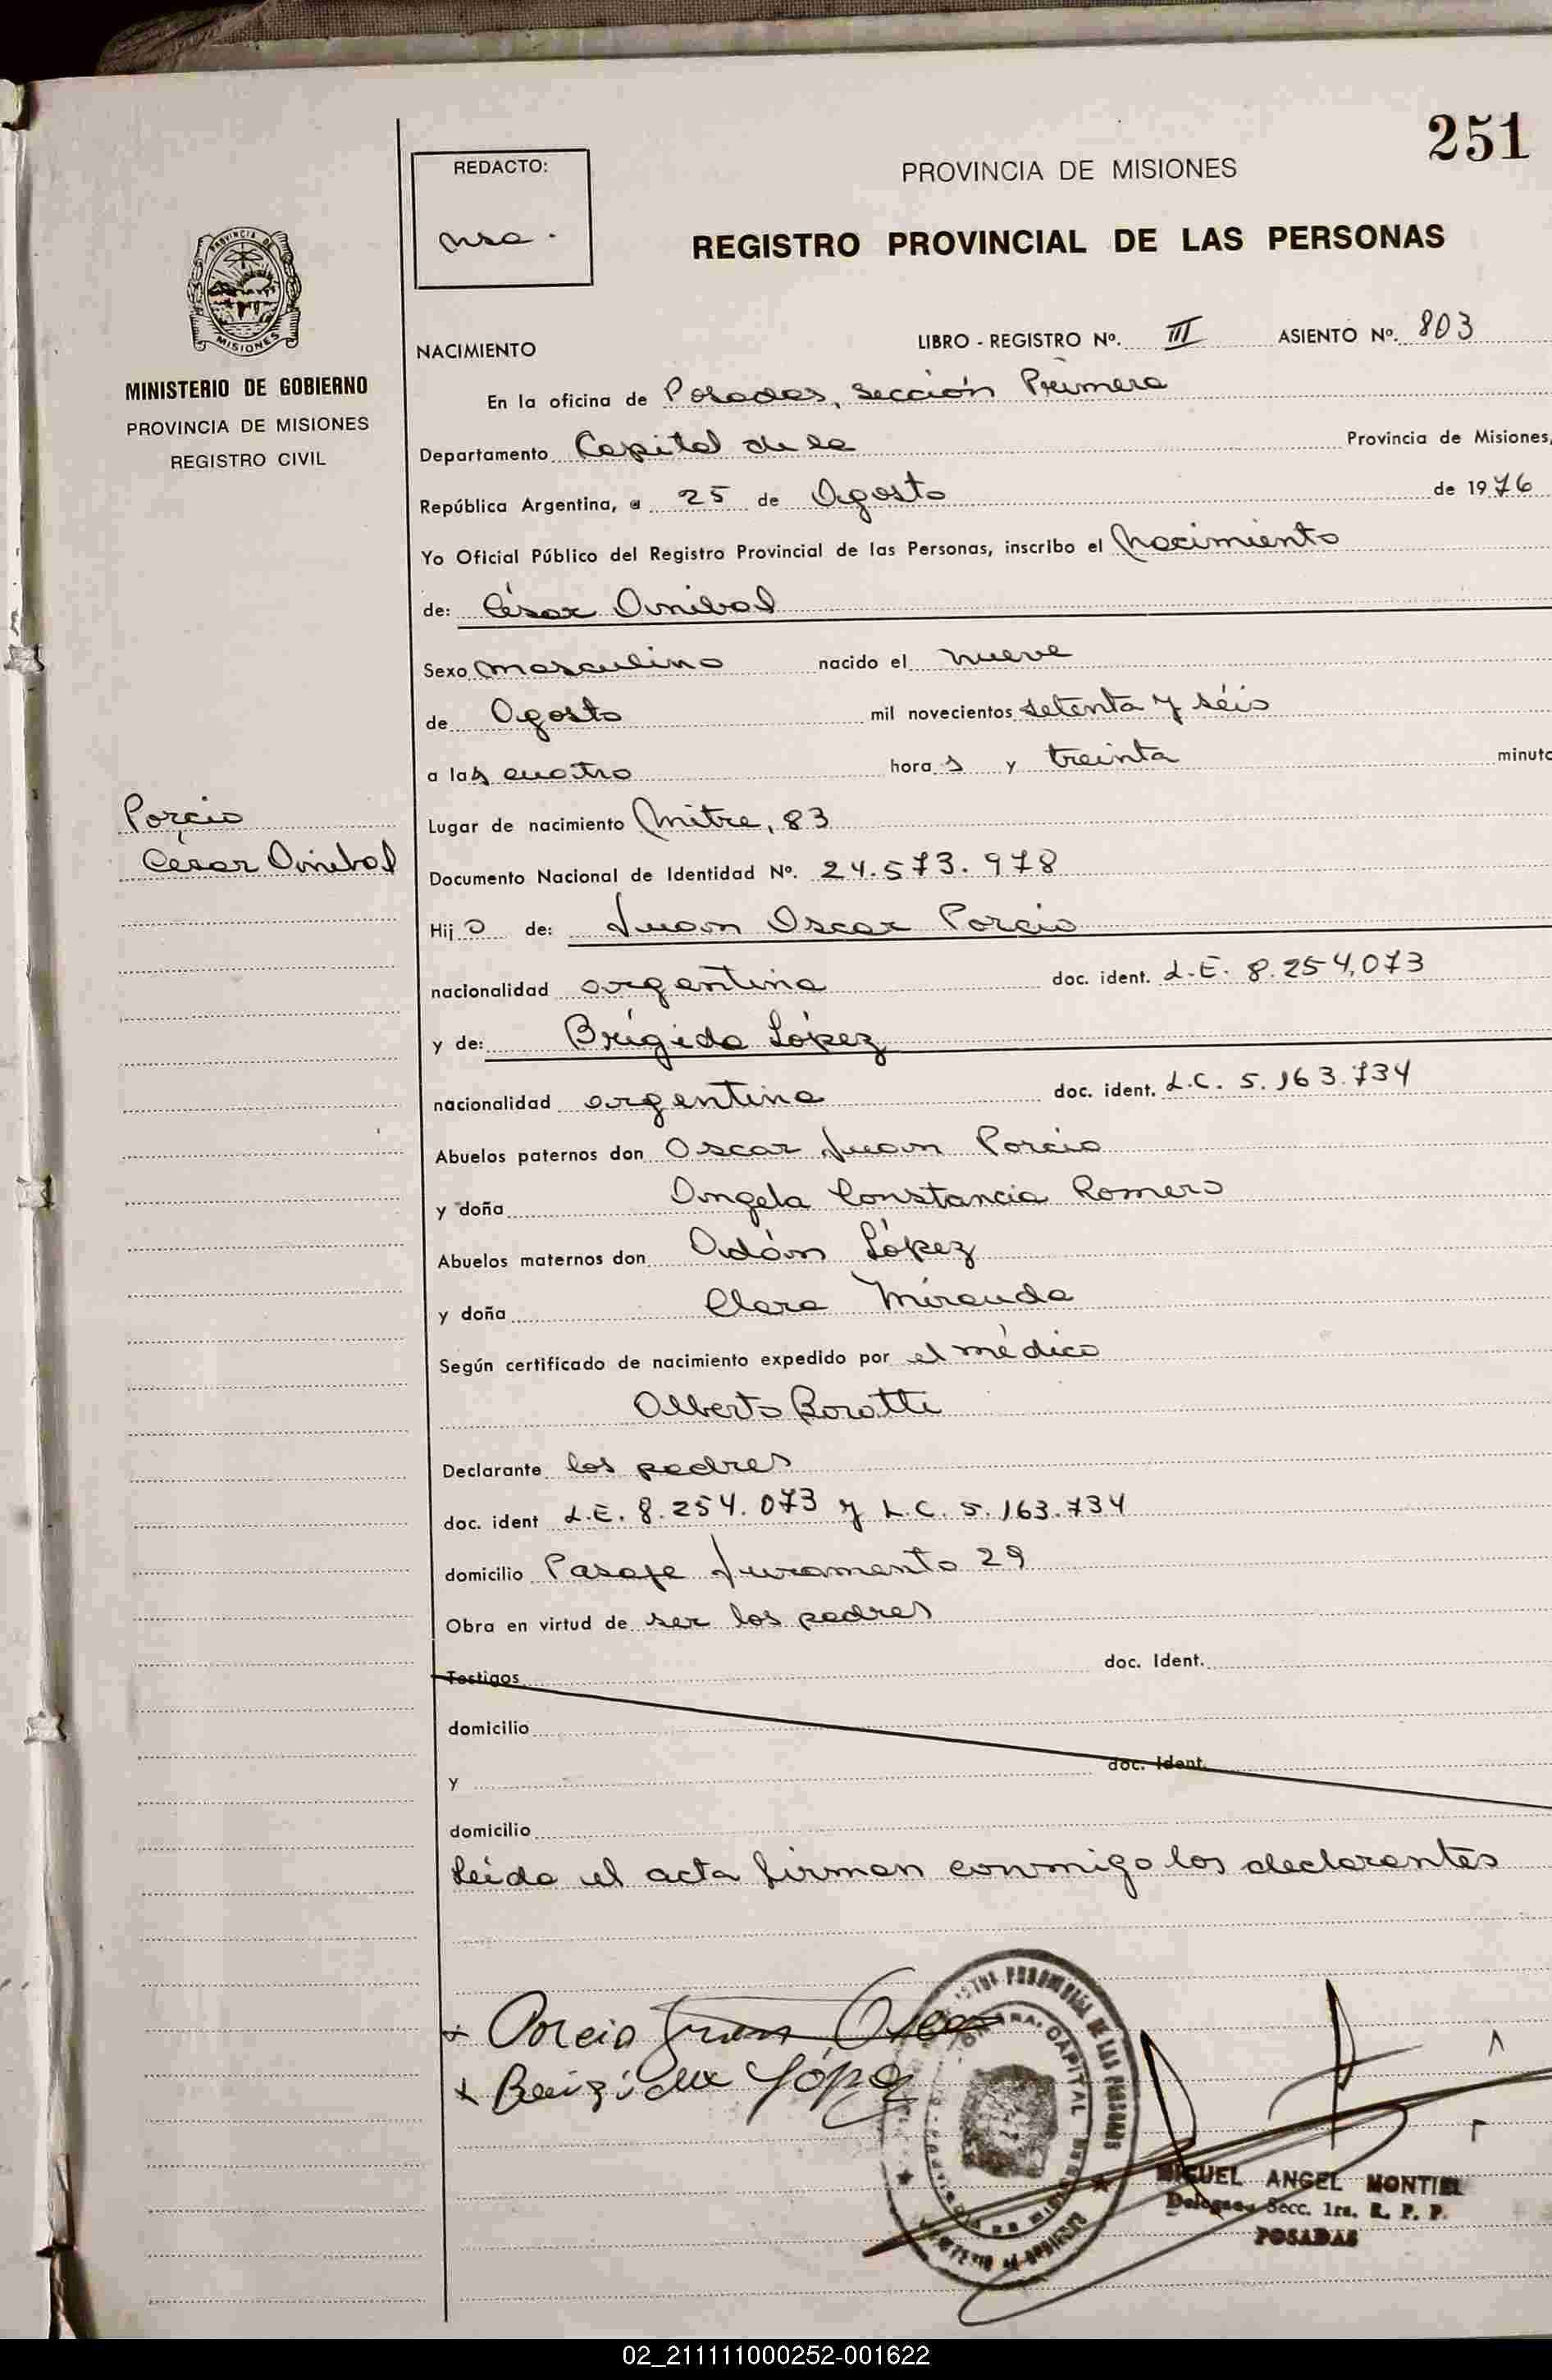 251
REDACTO:
PROVINCIA DE MISIONES
REGISTRO PROVINCIAL DE LAS PERSONAS
PROVINCIA DE
MISIONES
MINISTERIO DE GOBIERNO
PROVINCIA DE MISIONES
REGISTRO CIVIL
NACIMIENTO LIBRO - REGISTRO Nº. III ASIENTO Nº. 803
En la oficina de Posadas, sección Primera
Departamento Capital de la Provincia de Misiones,
República Argentina, a 25 de Agosto de 1976
Yo Oficial Público del Registro Provincial de las Personas, inscribo el Nacimiento
de: César Anibal
Sexo masculino nacido el nueve
de Agosto mil novecientos setenta y séis
a las cuatro horas y treinta minuto
Porcio
César Anibal
Lugar de nacimiento Mitre, 83
Documento Nacional de Identidad Nº. 24.573.978
Hijo de: Juan Oscar Porcio
nacionalidad argentina doc. ident. L.E. 8.254.073
y de: Brígida López
nacionalidad argentina doc. ident. L.C. 5.163.734
Abuelos paternos don Oscar Juan Porcio
y doña Angela Constancia Romero
Abuelos maternos don Adán López
y doña Clara Miranda
Según certificado de nacimiento expedido por el médico
Alberto Boratti
Declarante los padres
doc. ident L.E. 8.254.073 y L.C. 5.163.734
domicilio Pasaje Juramento 29
Obra en virtud de ser los padres
Testigos doc. Ident.
domicilio
y doc. Ident.
domicilio
Leída el acta firman conmigo los declarantes
Porcio Juan Oscar
Brígida López
CAPITAL
MIGUEL ANGEL MONTIEL
Delegado Secc. 1ra. R. P. P.
POSADAS
02_211111000252-001622